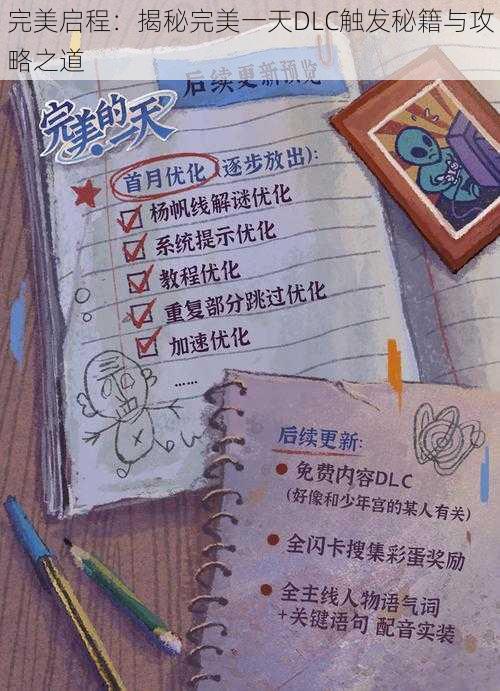 完美启程：揭秘完美一天DLC触发秘籍与攻
略之道
后续更新预览
完美的一天
首月优化（逐步放出）：
杨帆线解谜优化
系统提示优化
教程优化
重复部分跳过优化
加速优化
……
后续更新：
免费内容DLC
（好像和少年宫的某人有关）
全闪卡搜集彩蛋奖励
全主线人物语气词
+关键语句 配音实装